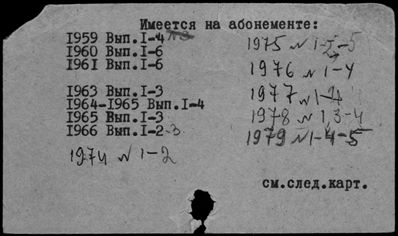 Имеется на абонементе:
1959 Вып.I-4
1960 Вып.I-6
1961 Вып.I-6
1963 Вып.I-3
1964-1965 Вып.I-4
1965 Вып.I-3
1966 Вып.I-2-3
1974 N 1-2
1975 N 1-2-5
1976 N 1-4
1977 N 1-4
1978 N 1,3-4
1979 N 1-4-5
см.след.карт.